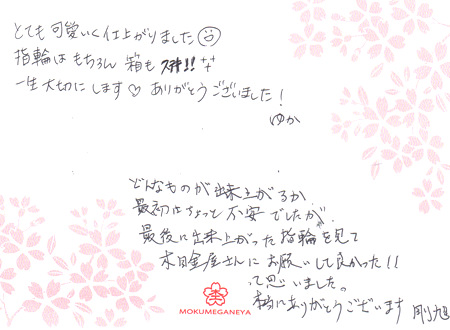 とても可愛いく仕上がりました
指輪はもちろん箱もステキ!!
一生大切にします♡ ありがとうございました!
ゆか
どんなものが出来上がるか
最初はちょっと不安でしたが
最後に出来上がった指輪を見て
木目金屋さんにお願いして良かった!!
って思いました。
本当にありがとうございます 剛旭
MOKUMEGANEYA